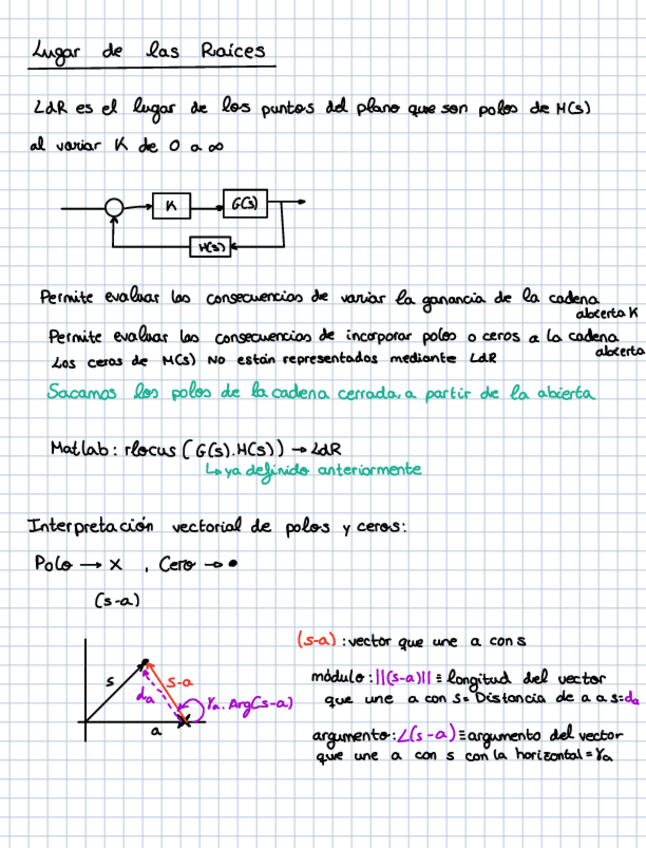 Lugar de las Raíces
LdR es el lugar de los puntos del plano que son polos de M(s)
al variar K de 0 a ∞
K
G(s)
H(s)
Permite evaluar las consecuencias de variar la ganancia de la cadena
abierta K
Permite evaluar las consecuencias de incorporar polos o ceros a la cadena
abierta
Los ceros de M(s) NO están representados mediante LdR
Sacamos los polos de la cadena cerrada, a partir de la abierta
Matlab: rlocus (G(s).H(s)) → LdR
↳ ya definido anteriormente
Interpretación vectorial de polos y ceros:
Polo → x , Cero → •
(s-a)
(s-a) : vector que une a con s
módulo: ||(s-a)|| ≡ longitud del vector
que une a con s = Distancia de a a s = da
argumento: ∠(s-a) ≡ argumento del vector
que une a con s con la horizontal = γa
s
s-a
da
γa. Arg(s-a)
a